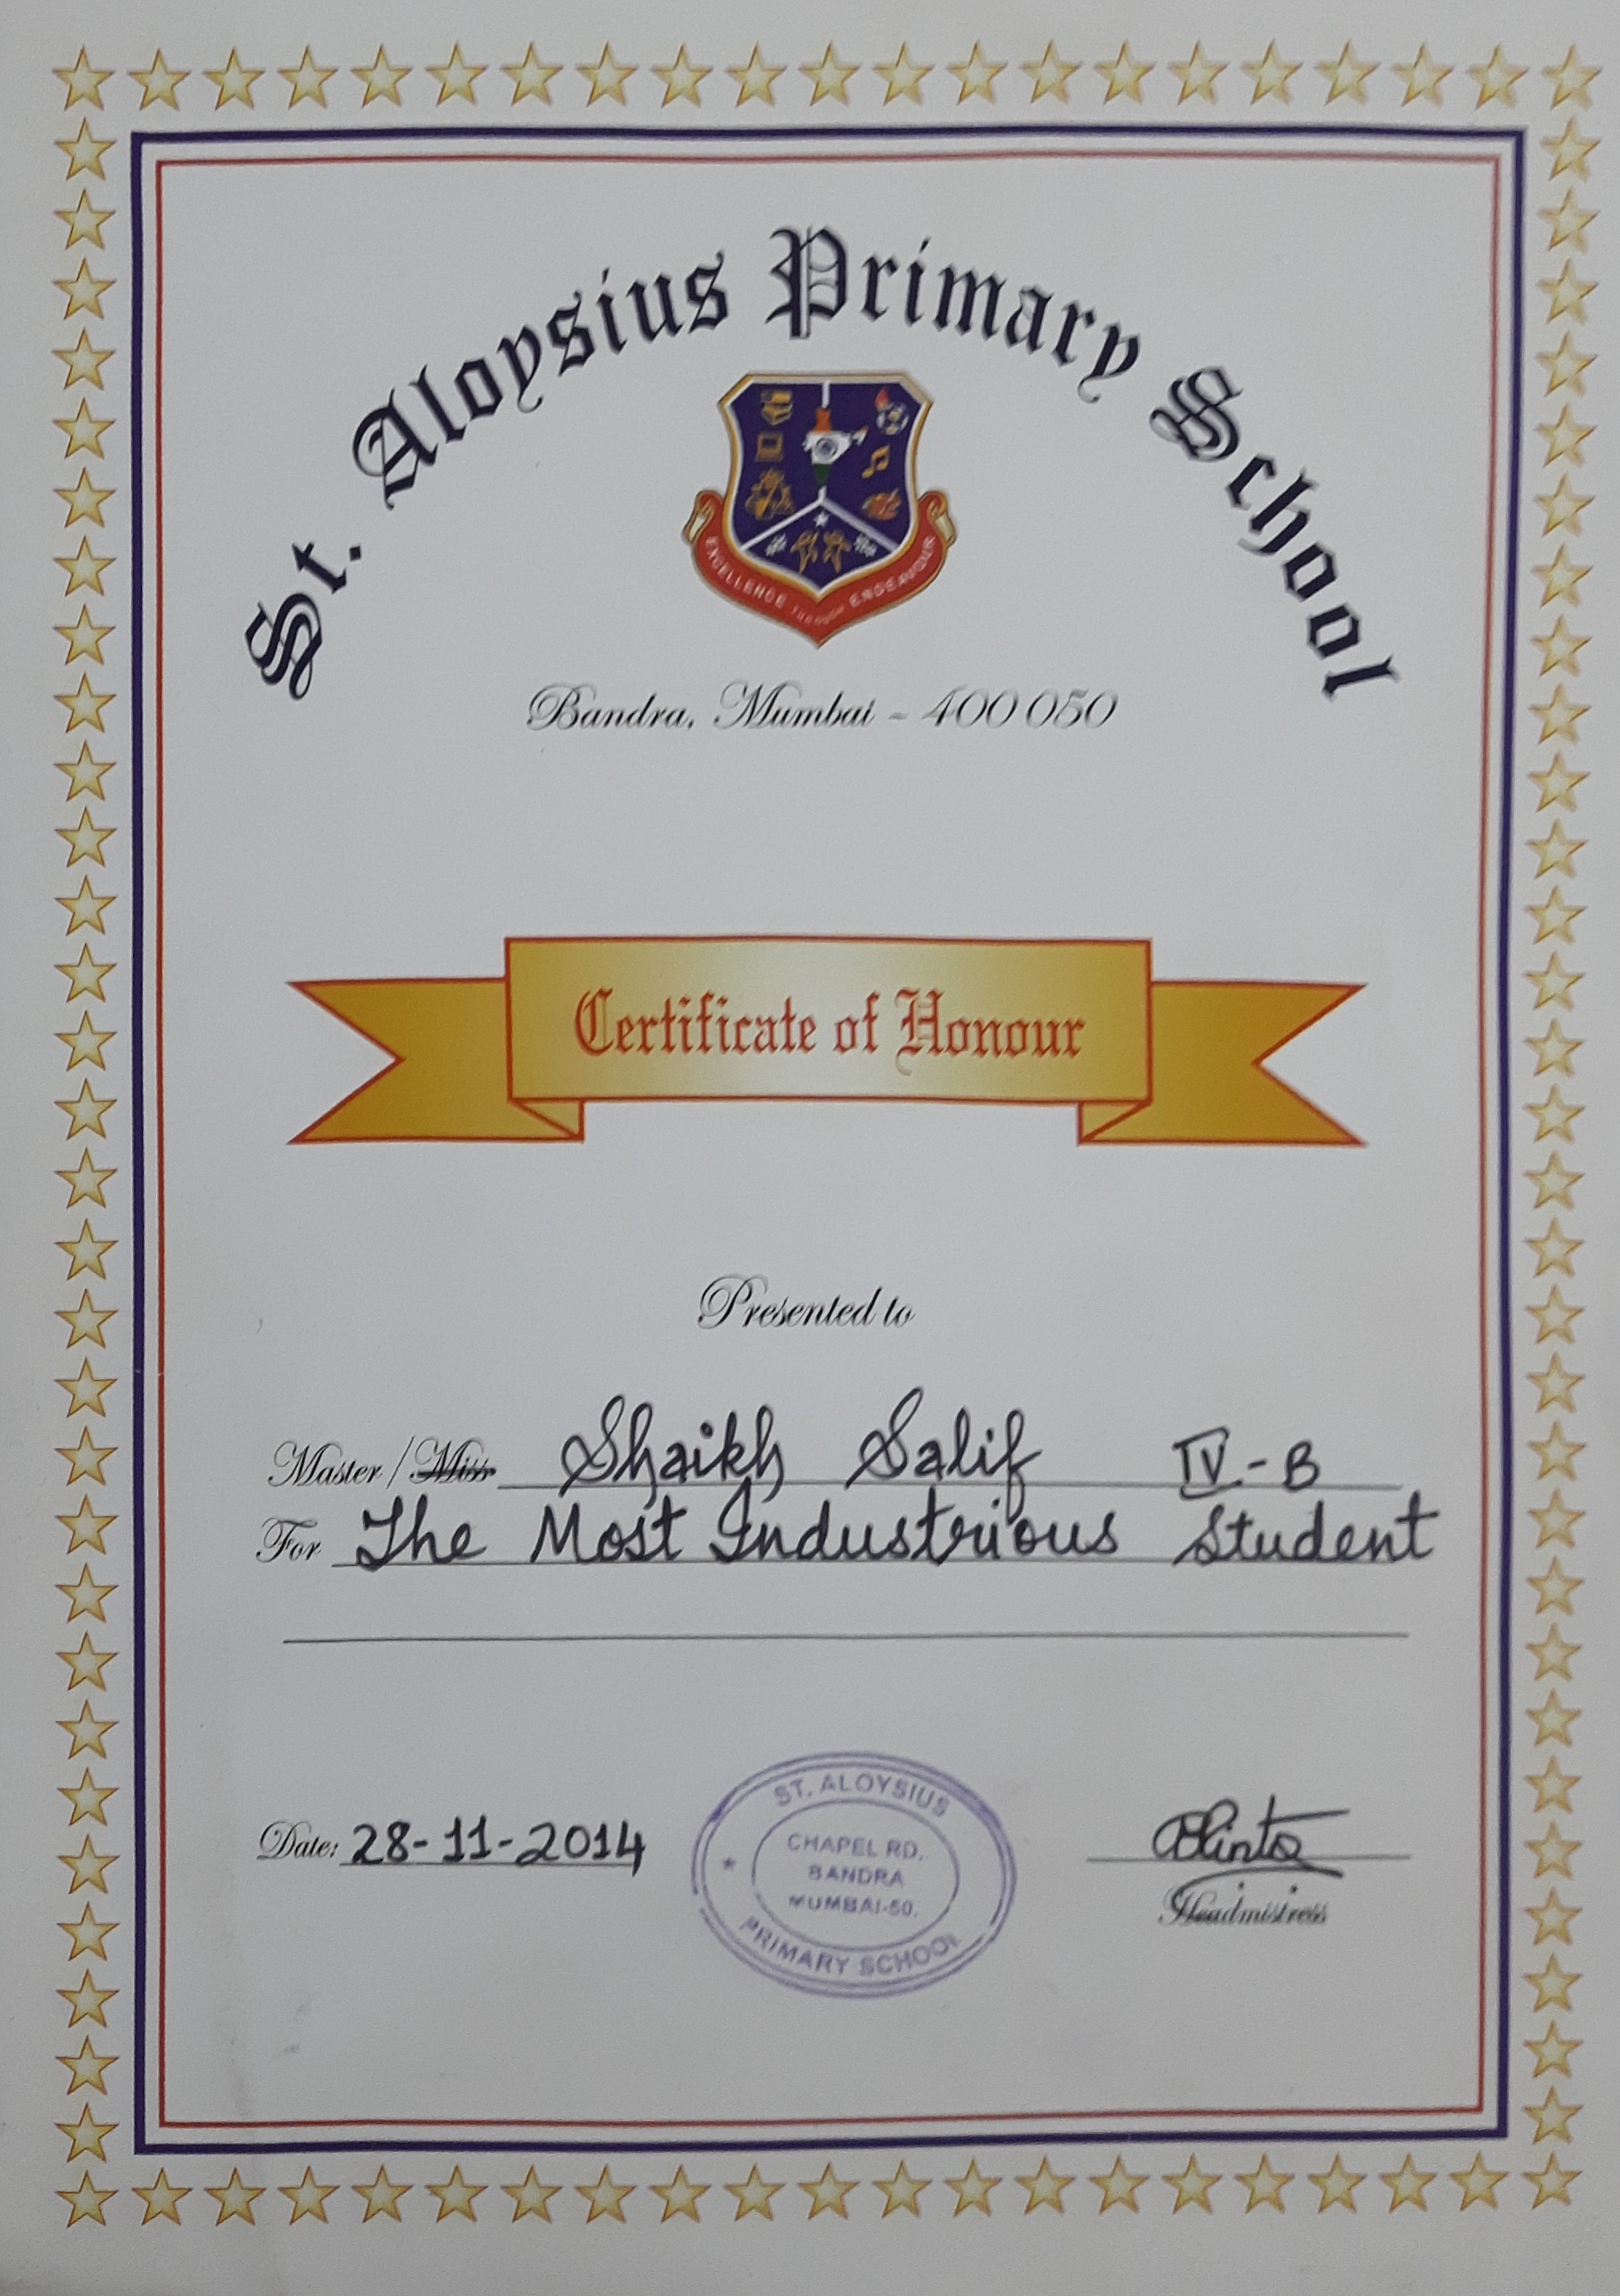 St. Aloysius Primary School
EXCELLENCE THROUGH ENDEAVOUR
Bandra, Mumbai - 400 050
Certificate of Honour
Presented to
Master / Miss Shaikh Salif IV - B
For The Most Industrious Student
Date: 28-11-2014
ST. ALOYSIUS
CHAPEL RD,
BANDRA
MUMBAI-50.
PRIMARY SCHOOL
Headmistress